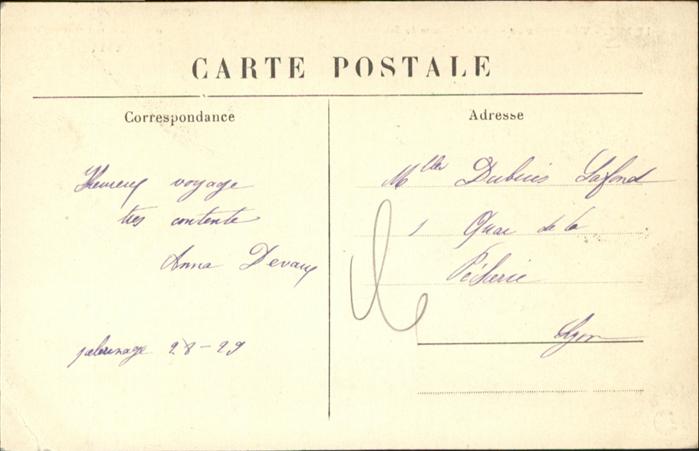 CARTE POSTALE
Correspondance
Heureux voyage
très contente
Anna Devaux
pelerinage 28-29
Adresse
Mlles Dubuis Lafond
1 Quai de la
Pêcherie
Lyon